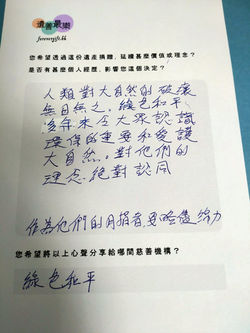 遺善最樂
forevergift.hk
您希望透過這份遺產捐贈，延續甚麼價值或理念？
是否有甚麼個人經歷，影響您這個決定？
人類對大自然的破壞
無日無之，綠色和平
多年來令大眾認識
環保的重要和愛護
大自然。對他們的
理念絕對認同
作為他們的月捐者更略儘
您希望將以上心聲分享給哪間慈善機構？
綠色和平